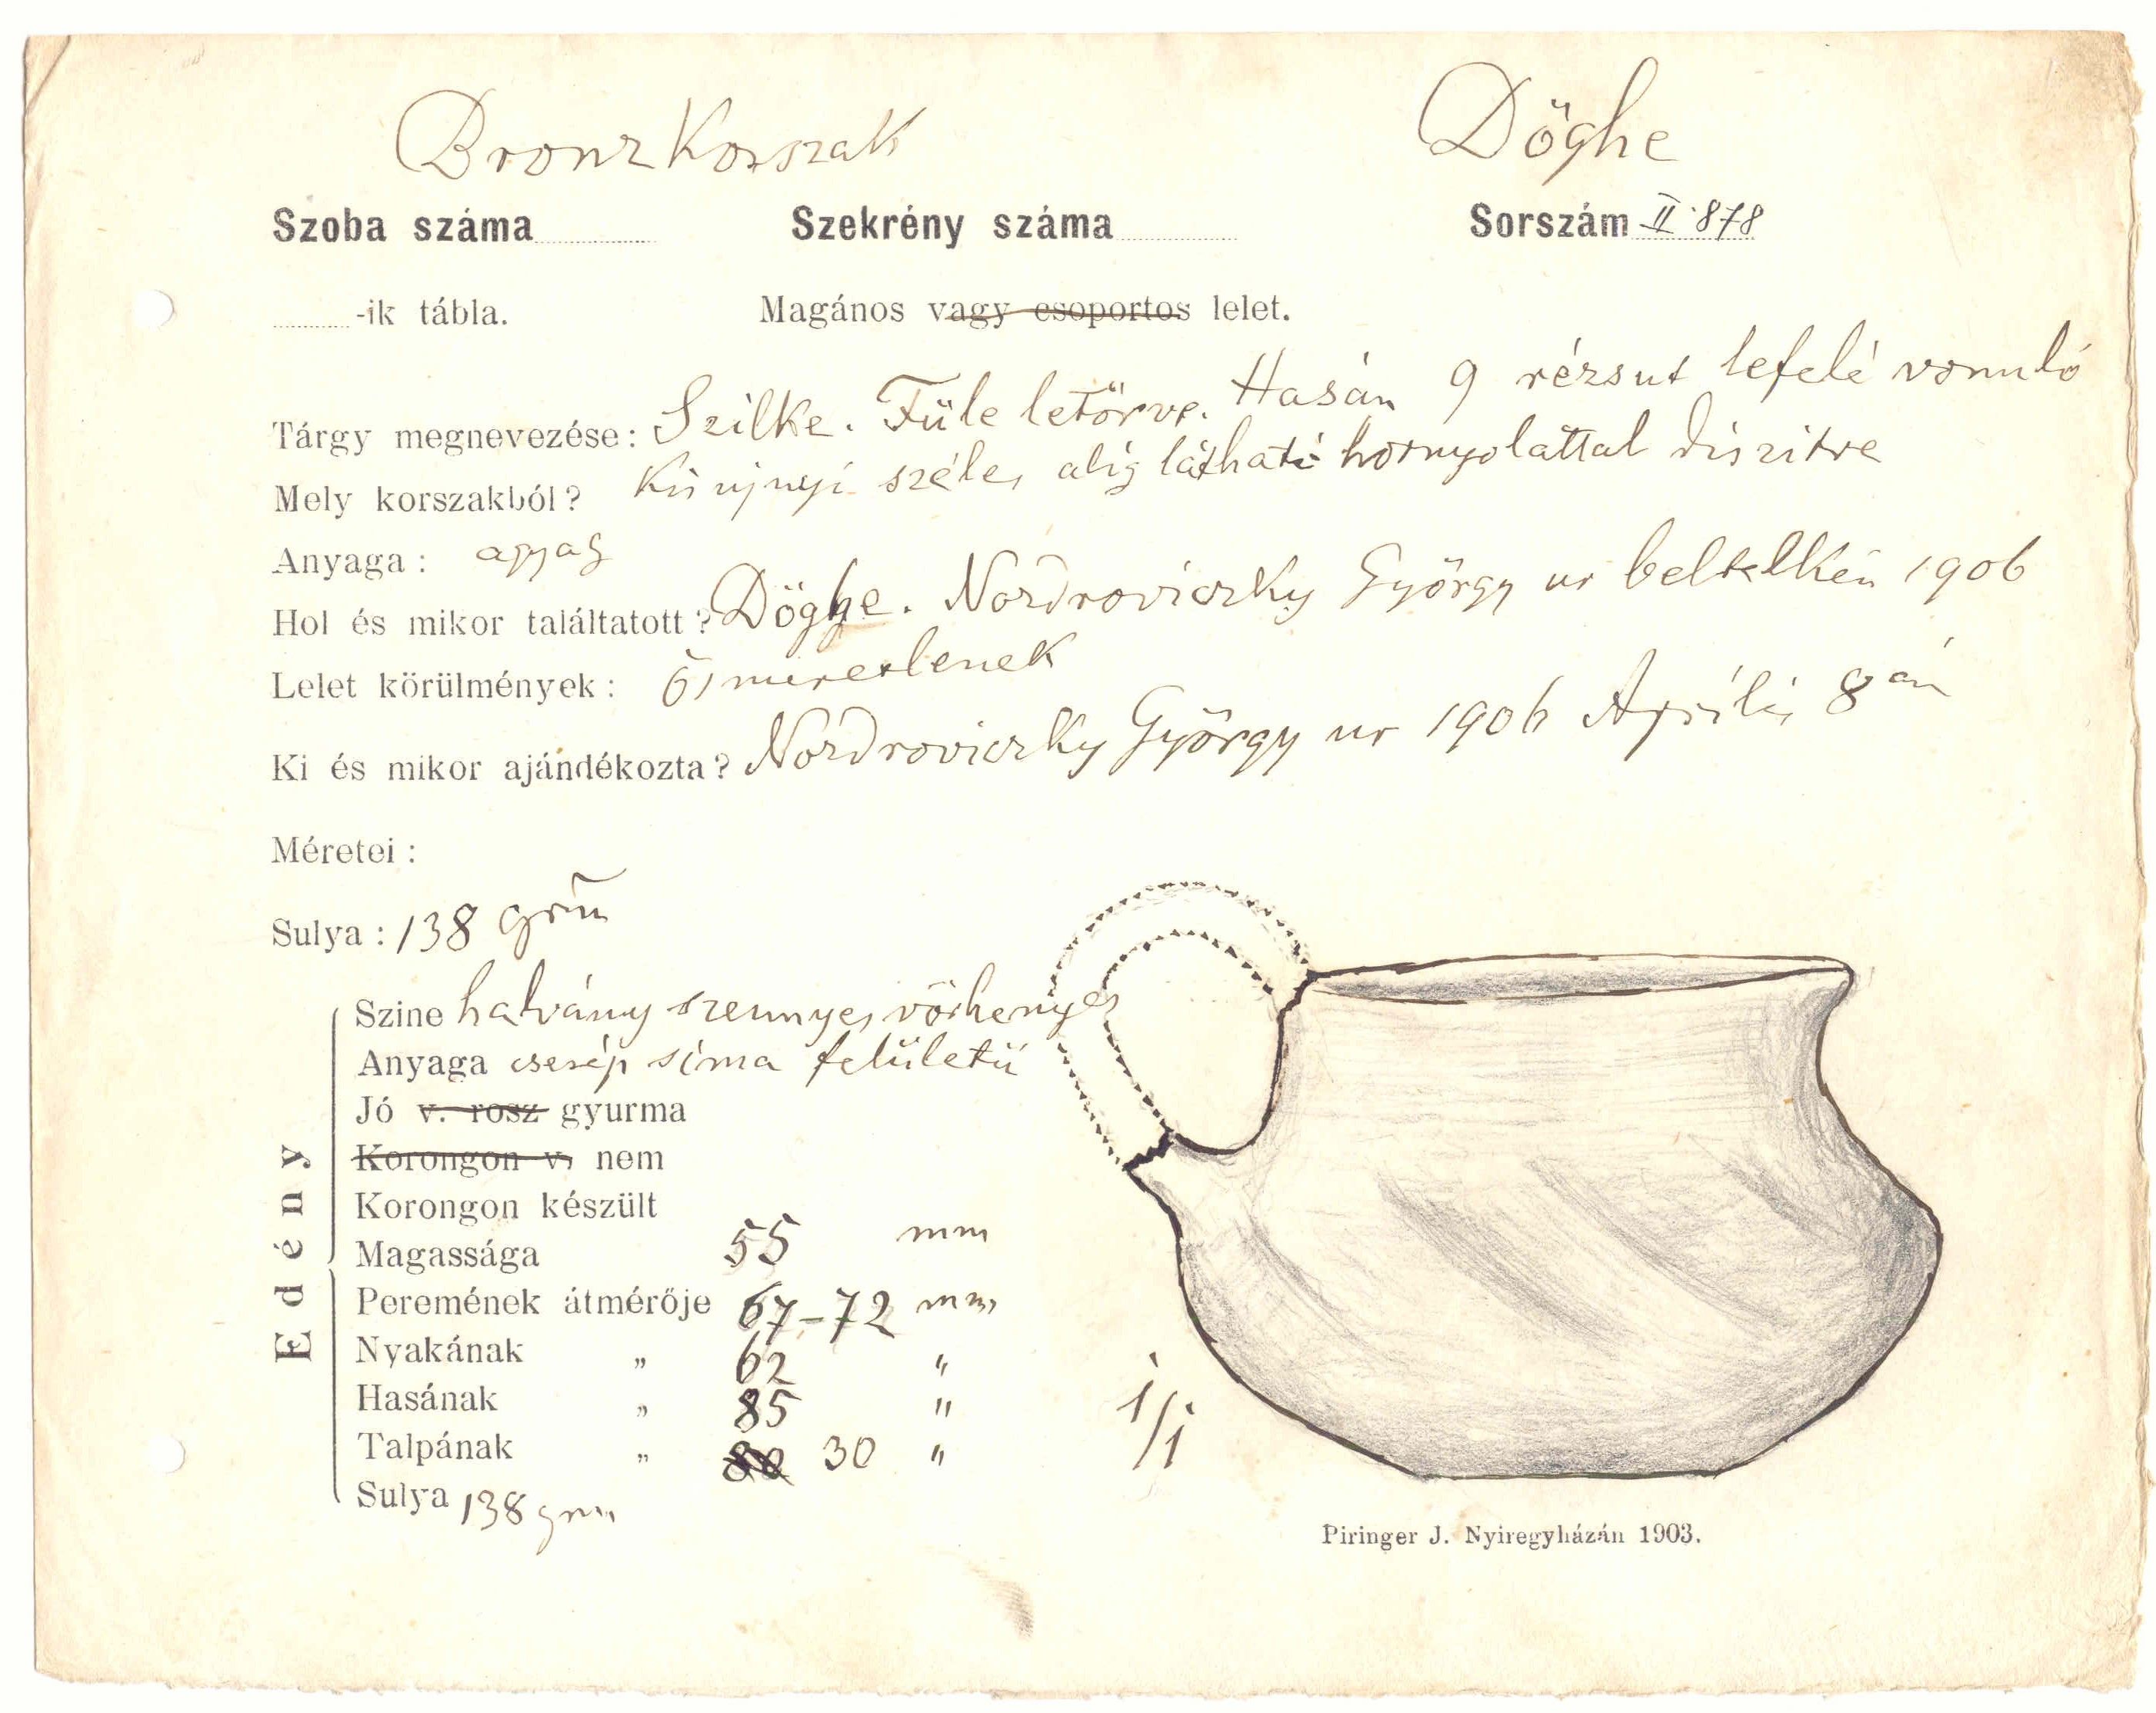 Bronz Korszak
Döghe
Szoba száma
Szekrény száma
Sorszám II.878
-ik tábla.
Magános vagy csoportos lelet.
Tárgy megnevezése: Szilke. Füle letörve. Hasán 9 rézsut lefelé vonuló
Mely korszakból? Kis ujnyi széles alig látható hornyolattal diszitve
Anyaga: agyag
Hol és mikor találtatott? Döghe. Nozdroviczky György ur beltelkén 1906
Lelet körülmények: ösmeretlenek
Ki és mikor ajándékozta? Nozdroviczky György ur 1906 Április 8 án
Méretei:
Sulya: 138 grm
Edény
Szine halvány szennyes vörhenyes
Anyaga cserép sima felületü
Jó v. rosz gyurma
Korongon v. nem
Korongon készült
Magassága 55 mm
Peremének átmérője 67-72 mm
Nyakának „ 62 "
Hasának „ 85 "
Talpának „ 30 "
Sulya 138 grm
1/1
Piringer J. Nyiregyházán 1903.